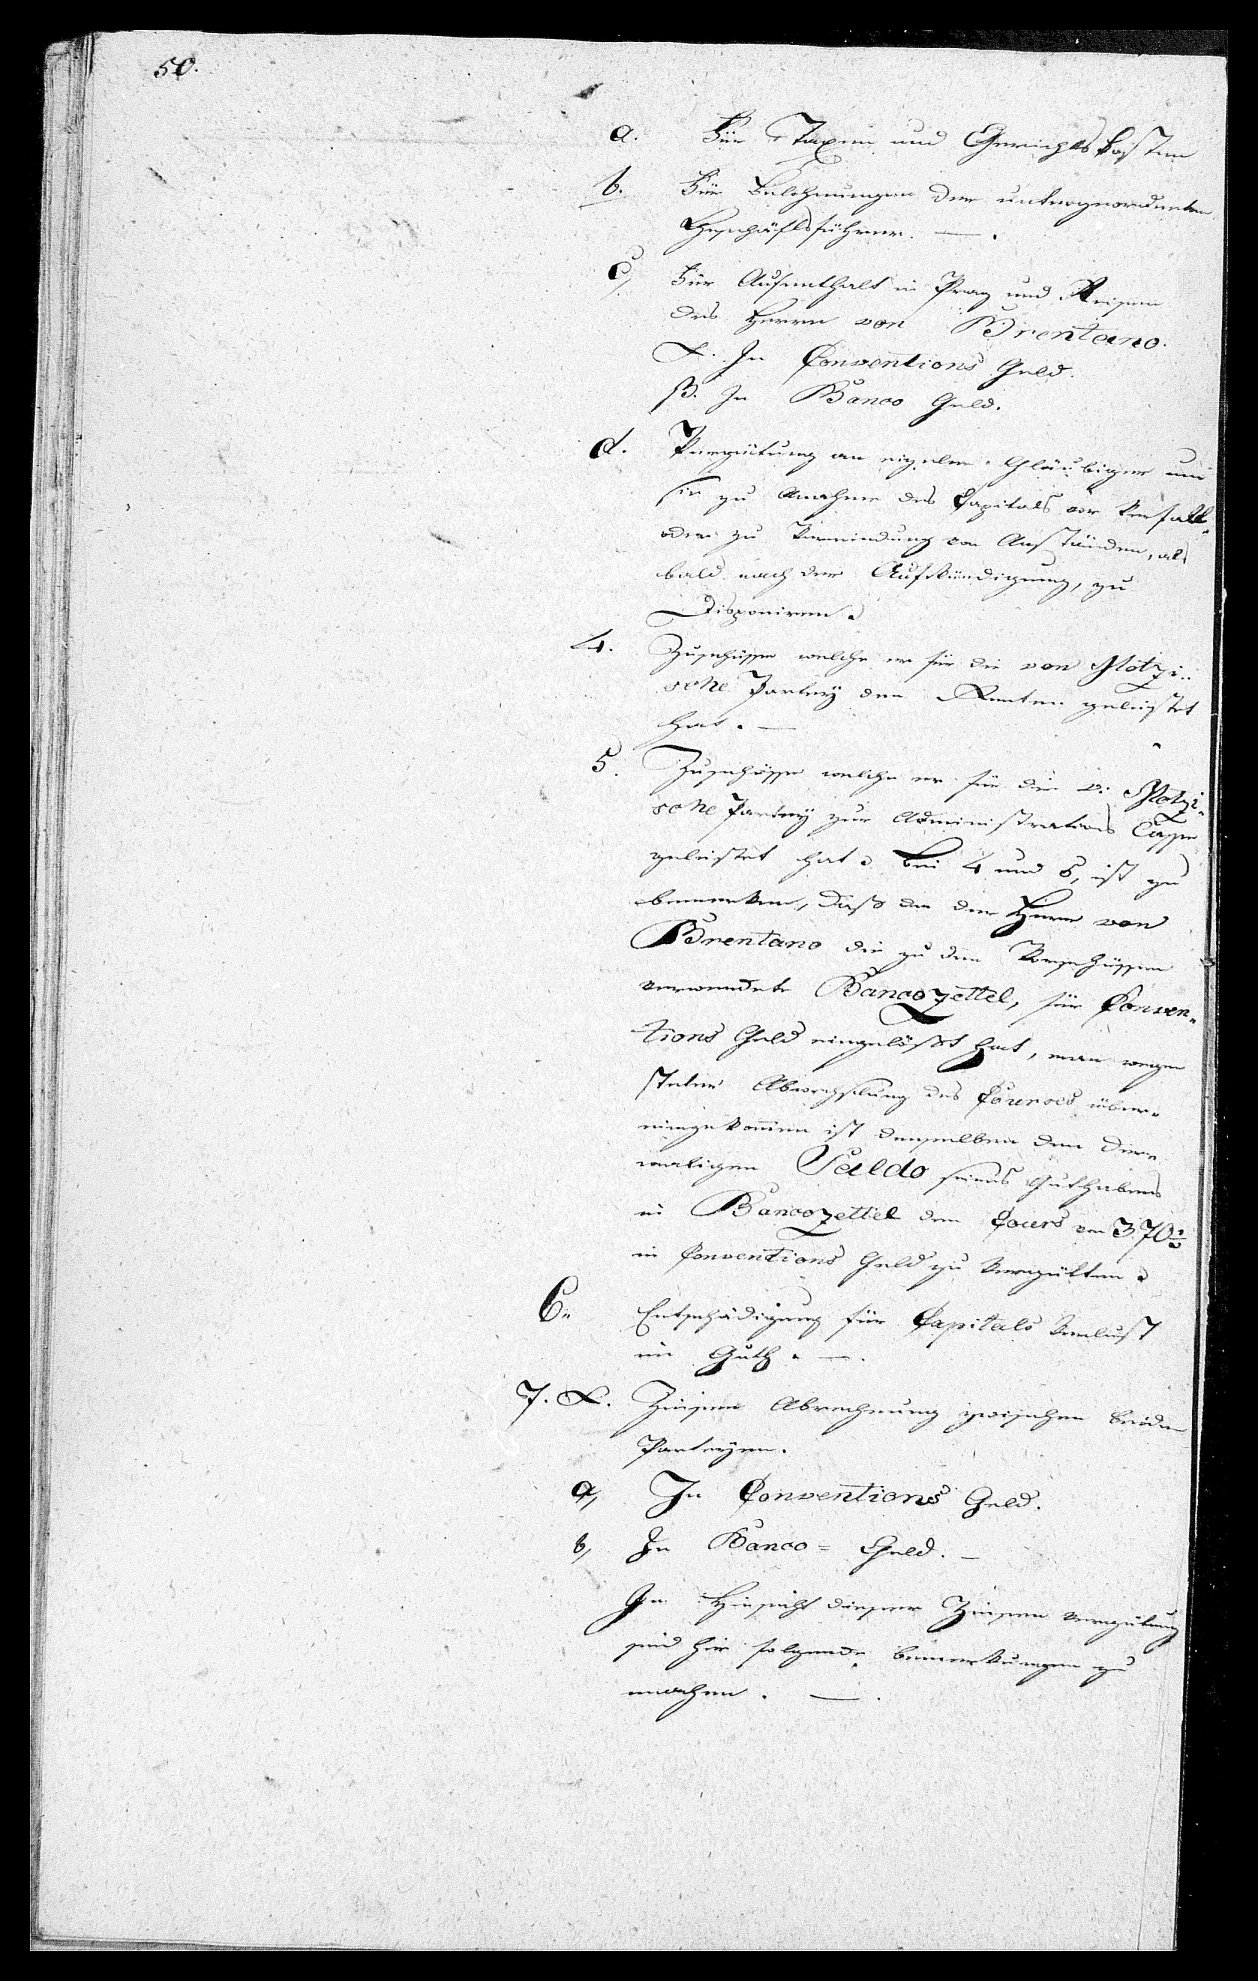 50.
a. Für Taxen und Gerichtskosten
b. Für Belohnungen der untergeordneten
Geschäftsführer. —.
c, Für Aufenthalt in Prag und Reisen
des Herrn von Brentano.
α. In Conventions Geld.
β. In Banco Geld.
d. Vergütung an einzelne Gläubiger um
sie zu Annahme des Capitals vor Verfall„
oder zu Vermeidung von Anständen, als
bald nach der Aufkündigung, zu
disponiren.
4. Zuschüsse welche er für die von Glotzi„
sche Partey den Renten geleistet
hat. —
5. Zuschüsse welche er für die v: Glotzi„
sche Partey zur Administrations Casse
geleistet hat. Bei 4 und 5, ist zu
bemerken, daß da der Herr von
Brentano die zu den Vorschüssen
verwendete Bancozettel, für Conven„
tions Geld eingelößt hat, man wegen
steter Abwechslung des Courses über„
eingekommen ist demselben den der„
maligen Saldo seines Guthabens
in Bancozettel dem Cours von 370½
in Conventions Geld zu vergütten.
6. Entschädigung für Capitals Verlust
im Guth. —.
7. α. Zinsen Abrechnung zwischen beiden
Parteyen.
a, In Conventions Geld.
b, In Banco = Geld. —
In Hinsicht dieser Zinsen vergütung
sind hier folgende bemerkungen zu
machen. —.